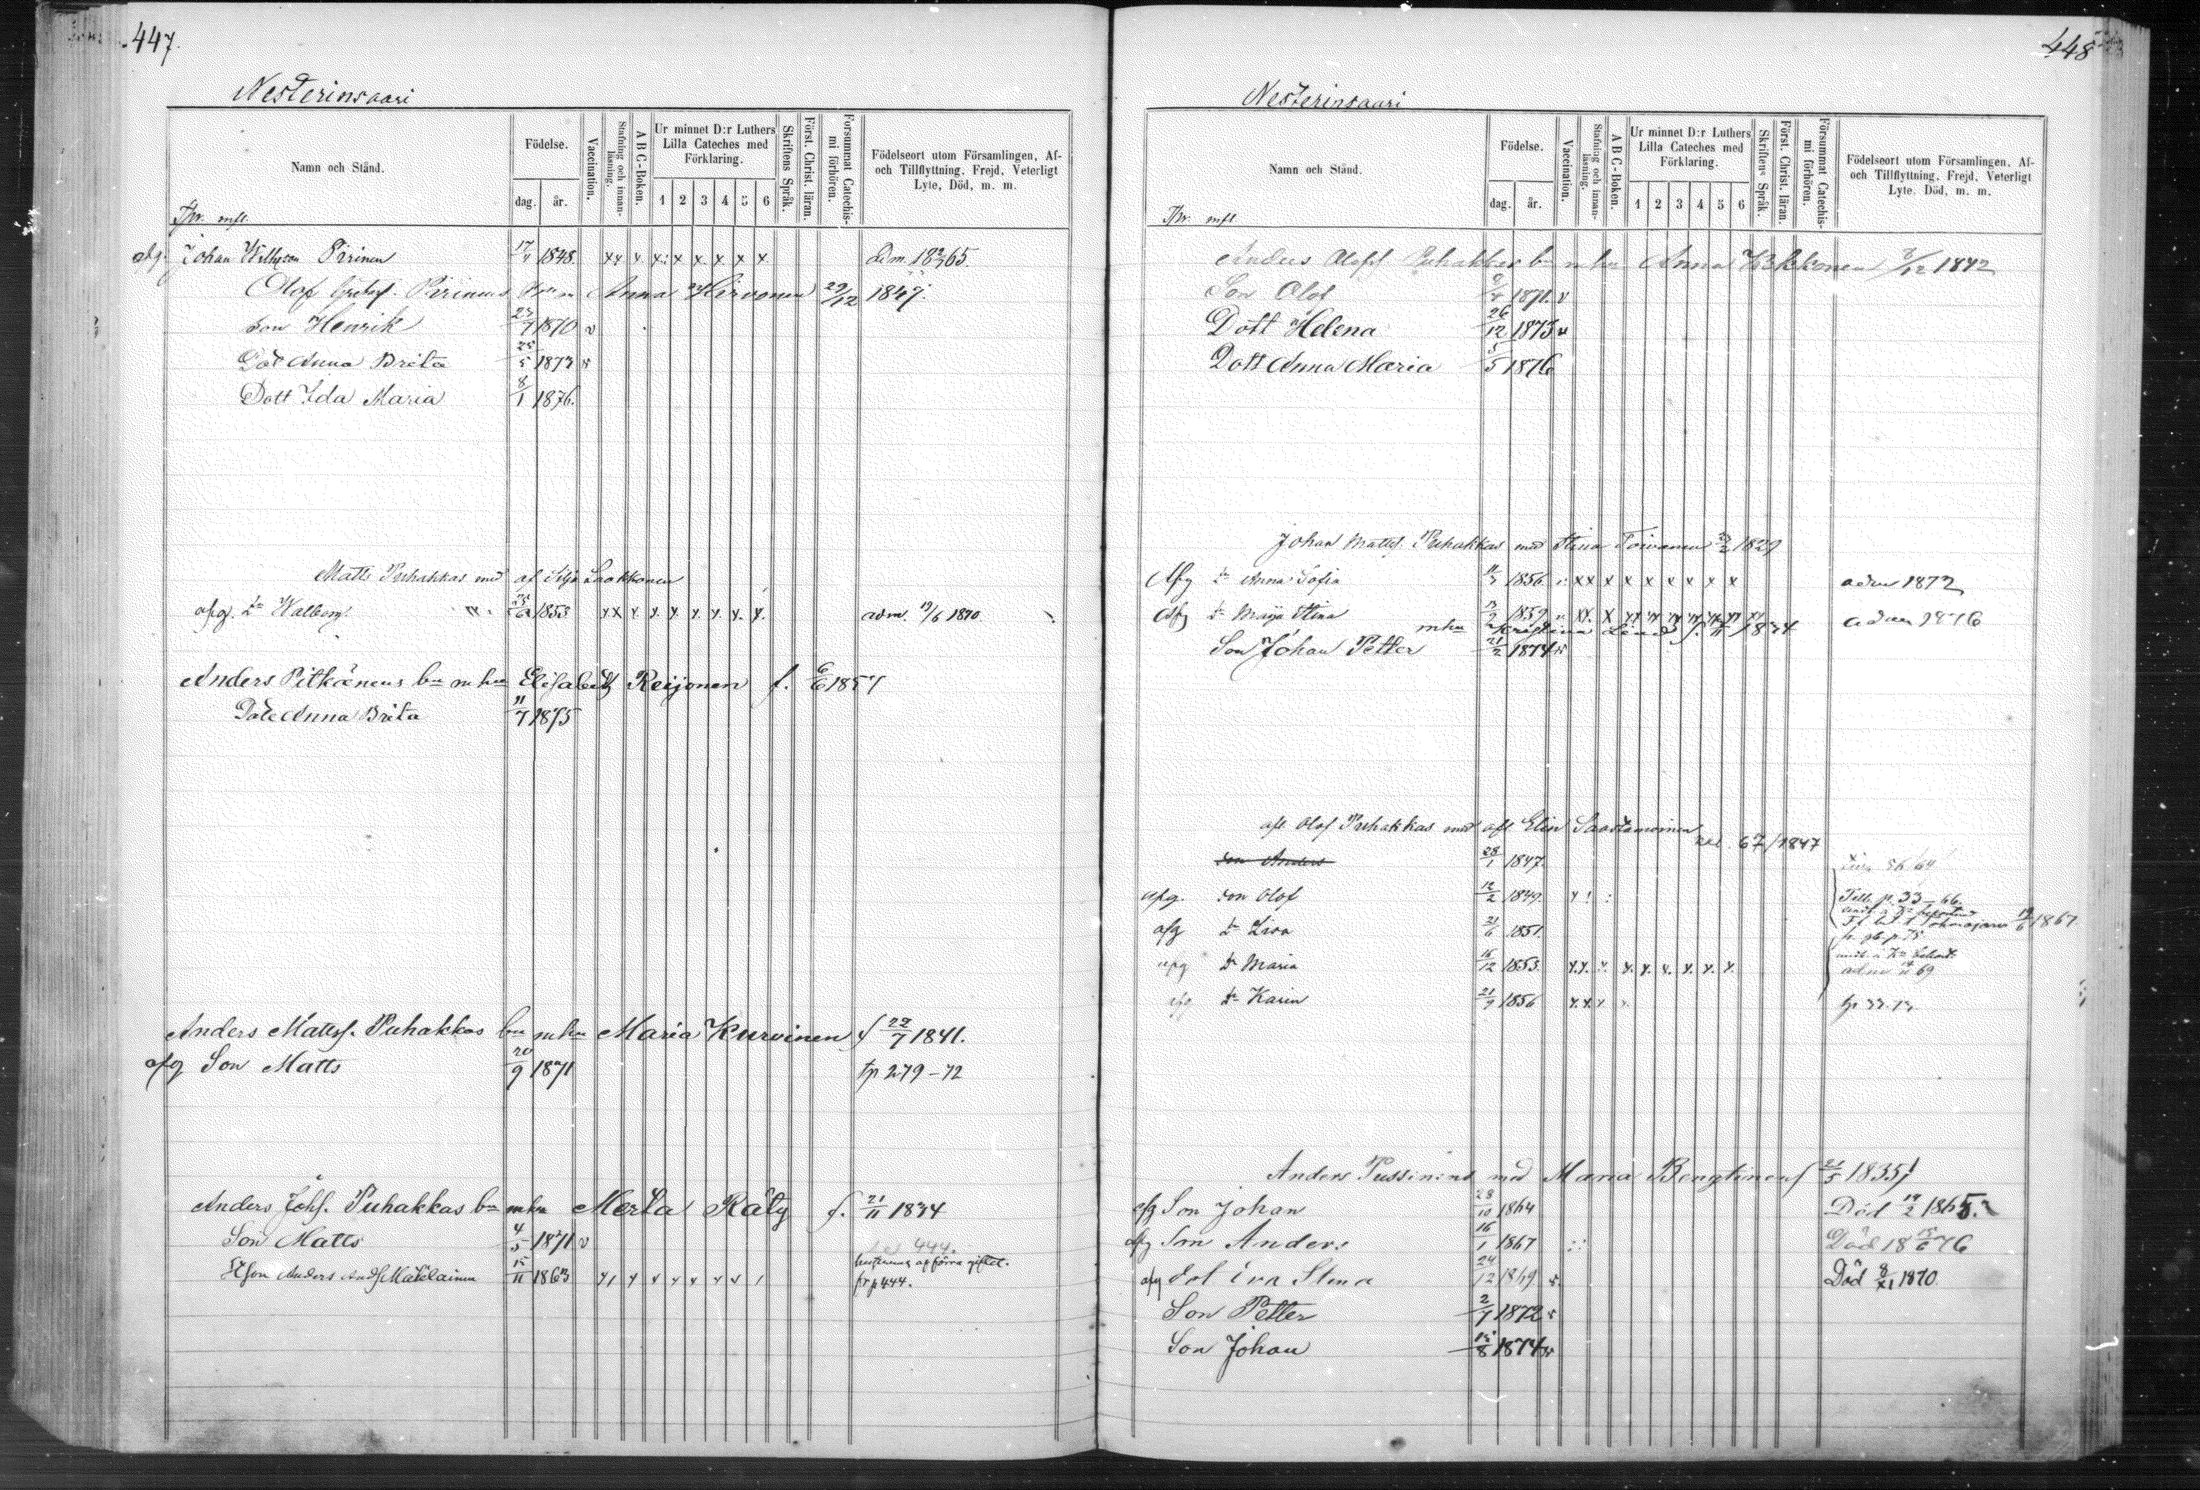 447.
Nesterinsaari
Namn och Stånd.
Födelse.
dag. år.
Vaccination.
Stafning och innanläsning.
ABC-Boken.
Ur minnet D:r Luthers Lilla Cateches med Förklaring.
1 2 3 4 5 6
Skriftens Språk.
Först. Christ. läran.
Försummat Catechismi förhören.
Födelseort utom Församlingen, Af- och Tillflyttning, Frejd, Veterligt Lyte, Död, m. m.
Johan Pirinen 17/11 1848. x x x x x x x x x
Olof Pirinens Anna Hirvonen 29/12 1847.
Son Henrik 1870 v
Dot Anna Brita 25/5 1873
Dott Ida Maria 8/1 1876.
Matts Puhakkas med af Silja Laakkonen
afg. Dr Walborg 1853 x x x x x x x x x adm. 19/6 1870.
Anders Pitkänens bn m hu Elisabeth Reijonen f. 6/6 1857
Dote Anna Brita 11/7 1875
Anders Mattss. Puhakkas bn m hu Maria Kurvinen f 22/7 1841.
afg Son Matts 20/9 1871 tp 279-72
Anders Johs. Puhakkas bn m hu Merta Räty f. 21/11 1834
Son Matts 4/5 1871 v 444.
Anders Ands Määttäinen 15/11 1863 hustruns af förra giftet.
fr p 444.
448
Nesterinsaari
Namn och Stånd.
Födelse.
dag. år.
Vaccination.
Stafning och innanläsning.
ABC-Boken.
Ur minnet D:r Luthers Lilla Cateches med Förklaring.
1 2 3 4 5 6
Skriftens Språk.
Först. Christ. läran.
Försummat Catechismi förhören.
Födelseort utom Församlingen, Af- och Tillflyttning, Frejd, Veterligt Lyte, Död, m. m.
Anders Olofs Puhakkas bn m hu Anna 1842
Son Olof 1871. v
Dott Helena 26/12 1873 v
Dott Anna Maria 5/5 1876
Johan Mattss. Puhakkas med Stina Toivanen 1829
Afg Dr Anna Sofia 1856. x x x x x x x x x adm 1872
Afg Dr Maija Stina 1859 adm 1876
m hu Kristina 1834
Son Johan Petter 21/2 1874
afl Olof Puhakkas med afl Elin Saastamoinen
67/1847
Son Anders 28/1 1847.
afg. Son Olof 12/2 1849. p. 33-66.
afg Dr Liisa 21/6 1851. 1867
afg Dr Maria 16/12 1853. adm 69
afg Dr Karin 21/9 1856
Anders Tussinens med Maria Bengtinen f 1835
afg Son Johan 28/10 1864 Död 1865.
afg Son Anders 16/1 1867 Död 1876
afg Dot Eva Stina 24/12 1869 Död 8/XI 1870.
Son Petter 1872
Son Johan 1874